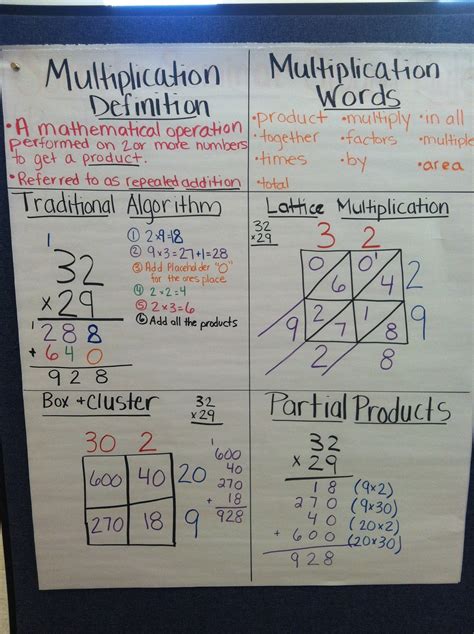 Multiplication
Definition
• A mathematical operation
performed on 2 or more numbers
to get a product.
• Referred to as repeated addition
Multiplication
Words
• product • multiply • in all
• together • factors • multiple
• times • by • area
• total
Traditional Algorithm
1
32
×29
1
288
+640
928
① 2×9=18
② 9×3=27+1=28
③ Add Placeholder "0"
for the ones place
④ 2×2=4
⑤ 2×3=6
⑥ Add all the products
Lattice Multiplication
32
×29
3 2
0 6 0 4 2
9 2 7 1 8 9
2 8
Box + Cluster
32
×29
30 2
600 40 20
270 18 9
1
600
40
270
+ 18
928
Partial Products
32
× 29
18 (9×2)
270 (9×30)
40 (20×2)
+ 600 (20×30)
928